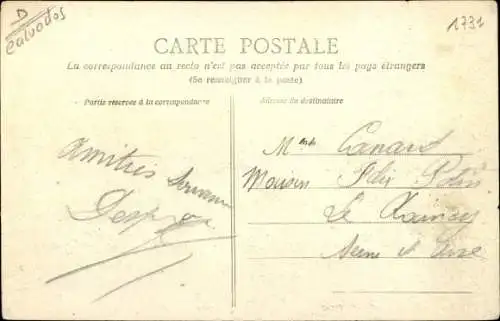 D
Calvados
1731
CARTE POSTALE
La correspondance au recto n'est pas acceptée par tous les pays étrangers
(Se renseigner à la poste)
Partie réservée à la correspondance
Adresse du destinataire
Amitiés
Mme Canard
Maison Félix Potin
Le Raincy
Seine et Oise